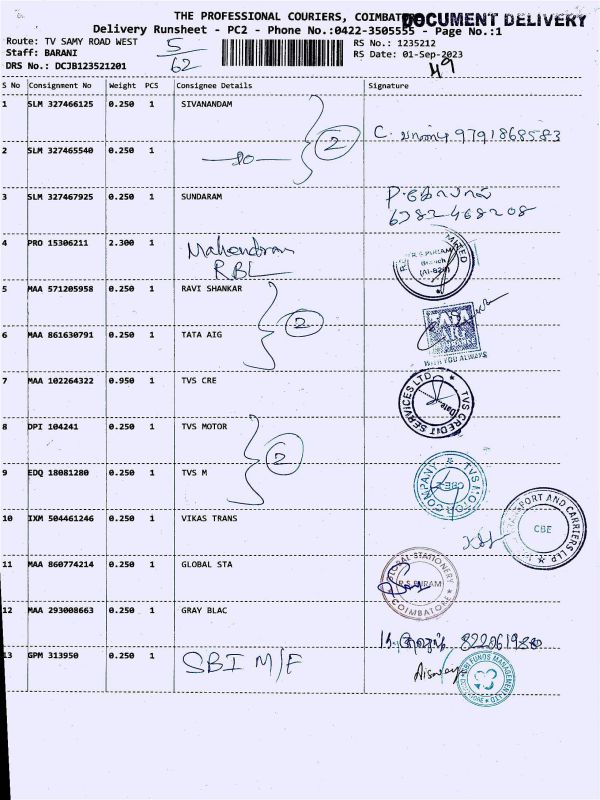 THE PROFESSIONAL COURIERS, COIMBAT
DOCUMENT DELIVERY
Delivery Runsheet - PC2 - Phone No.:0422-3505555 - Page No.:1
Route: TV SAMY ROAD WEST
Staff: BARANI
DRS No.: DCJB123521201
5
62
RS No.: 1235212
RS Date: 01-Sep-2023
49
S No Consignment No Weight PCS Consignee Details Signature
1 SLM 327466125 0.250 1 SIVANANDAM
2
C. 9791868583
2 SLM 327465540 0.250 1
3 SLM 327467925 0.250 1 SUNDARAM
P. கோபால்
6382468208
4 PRO 15306211 2.300 1 Mahendran
RBL
R S PURAM
Branch
5 MAA 571205958 0.250 1 RAVI SHANKAR
2
6 MAA 861630791 0.250 1 TATA AIG
TATA
AIG
INSURANCE
WITH YOU ALWAYS
7 MAA 102264322 0.950 1 TVS CRE
TVS CREDIT SERVICES LTD
Date
8 DPI 104241 0.250 1 TVS MOTOR
2
9 EDQ 18081280 0.250 1 TVS M
TVS MOTOR COMPANY
CBE-2
10 IXM 504461246 0.250 1 VIKAS TRANS
TRANSPORT AND CARRIERS LLP
CBE
11 MAA 860774214 0.250 1 GLOBAL STA
GLOBAL STATIONERY
R.S PURAM
COIMBATORE
12 MAA 293008663 0.250 1 GRAY BLAC
13 GPM 313950 0.250 1 SBI M/F
SBI FUNDS MANAGEMENT LTD